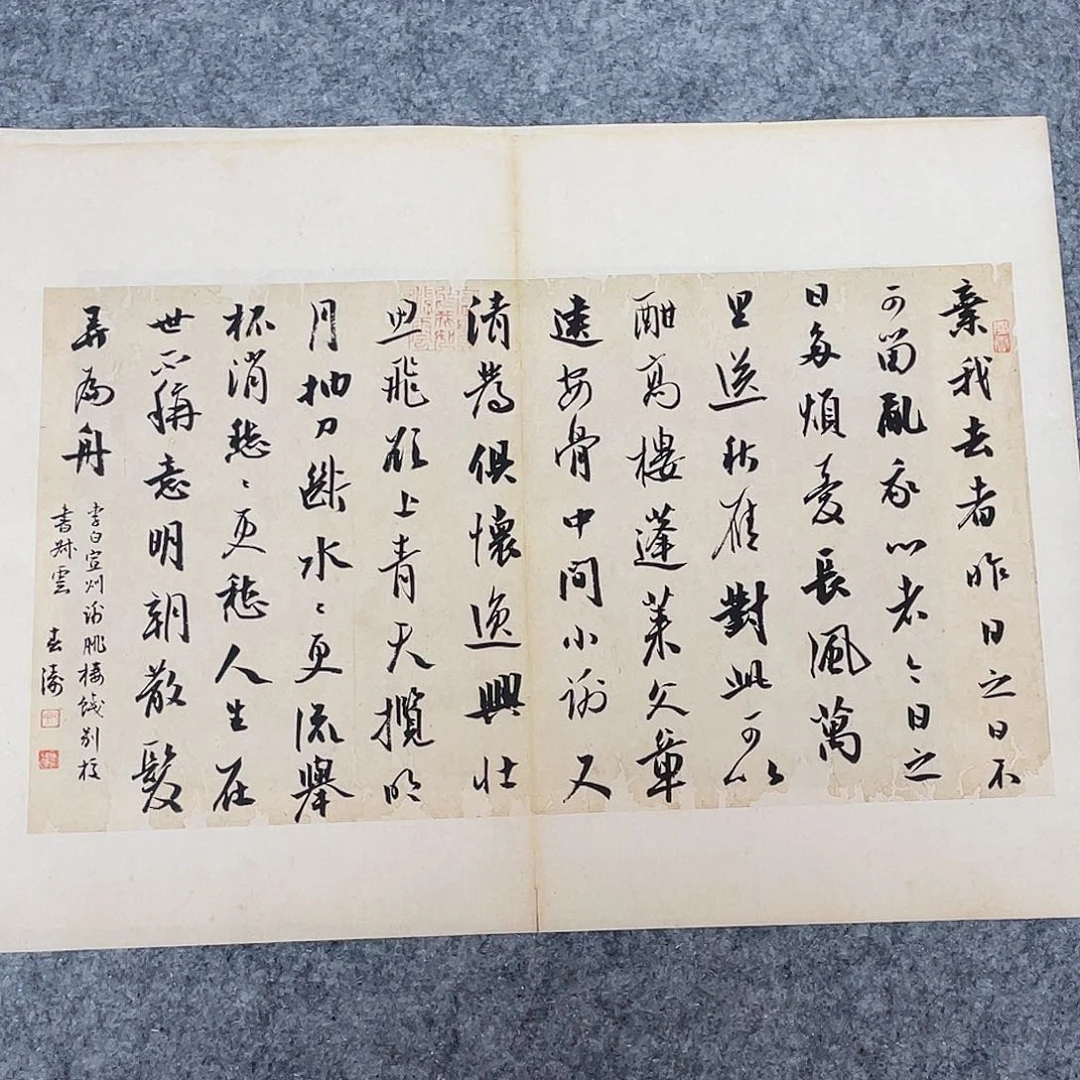 棄我去者昨日之日不
可留亂我心者今日之
日多煩憂長風萬
里送秋雁對此可以
酣高樓蓬萊文章
建安骨中間小謝又
清發俱懷逸興壯
思飛欲上青天攬明
月抽刀斷水〻更流舉
杯消愁〻更愁人生在
世不稱意明朝散髮
弄扁舟
李白宣州謝朓樓餞別校
書叔雲